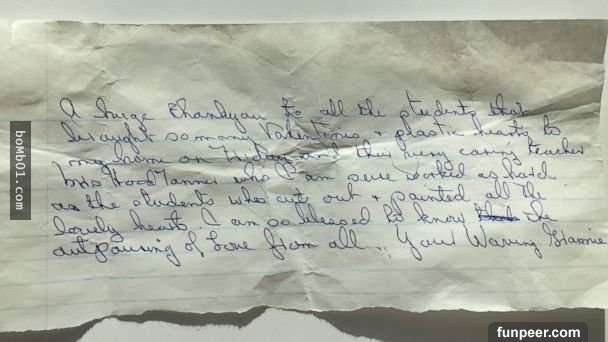 A huge Thankyou to all the students that
brought so many Valentines + plastic hearts to
my home on Friday and their very caring teacher
who I am sure worked as hard
as the students who cut out + painted all the
lovely hearts. I am so blessed to know the
outpouring of love from all. Your Waving Grannie
bomb01.com
funpeer.com